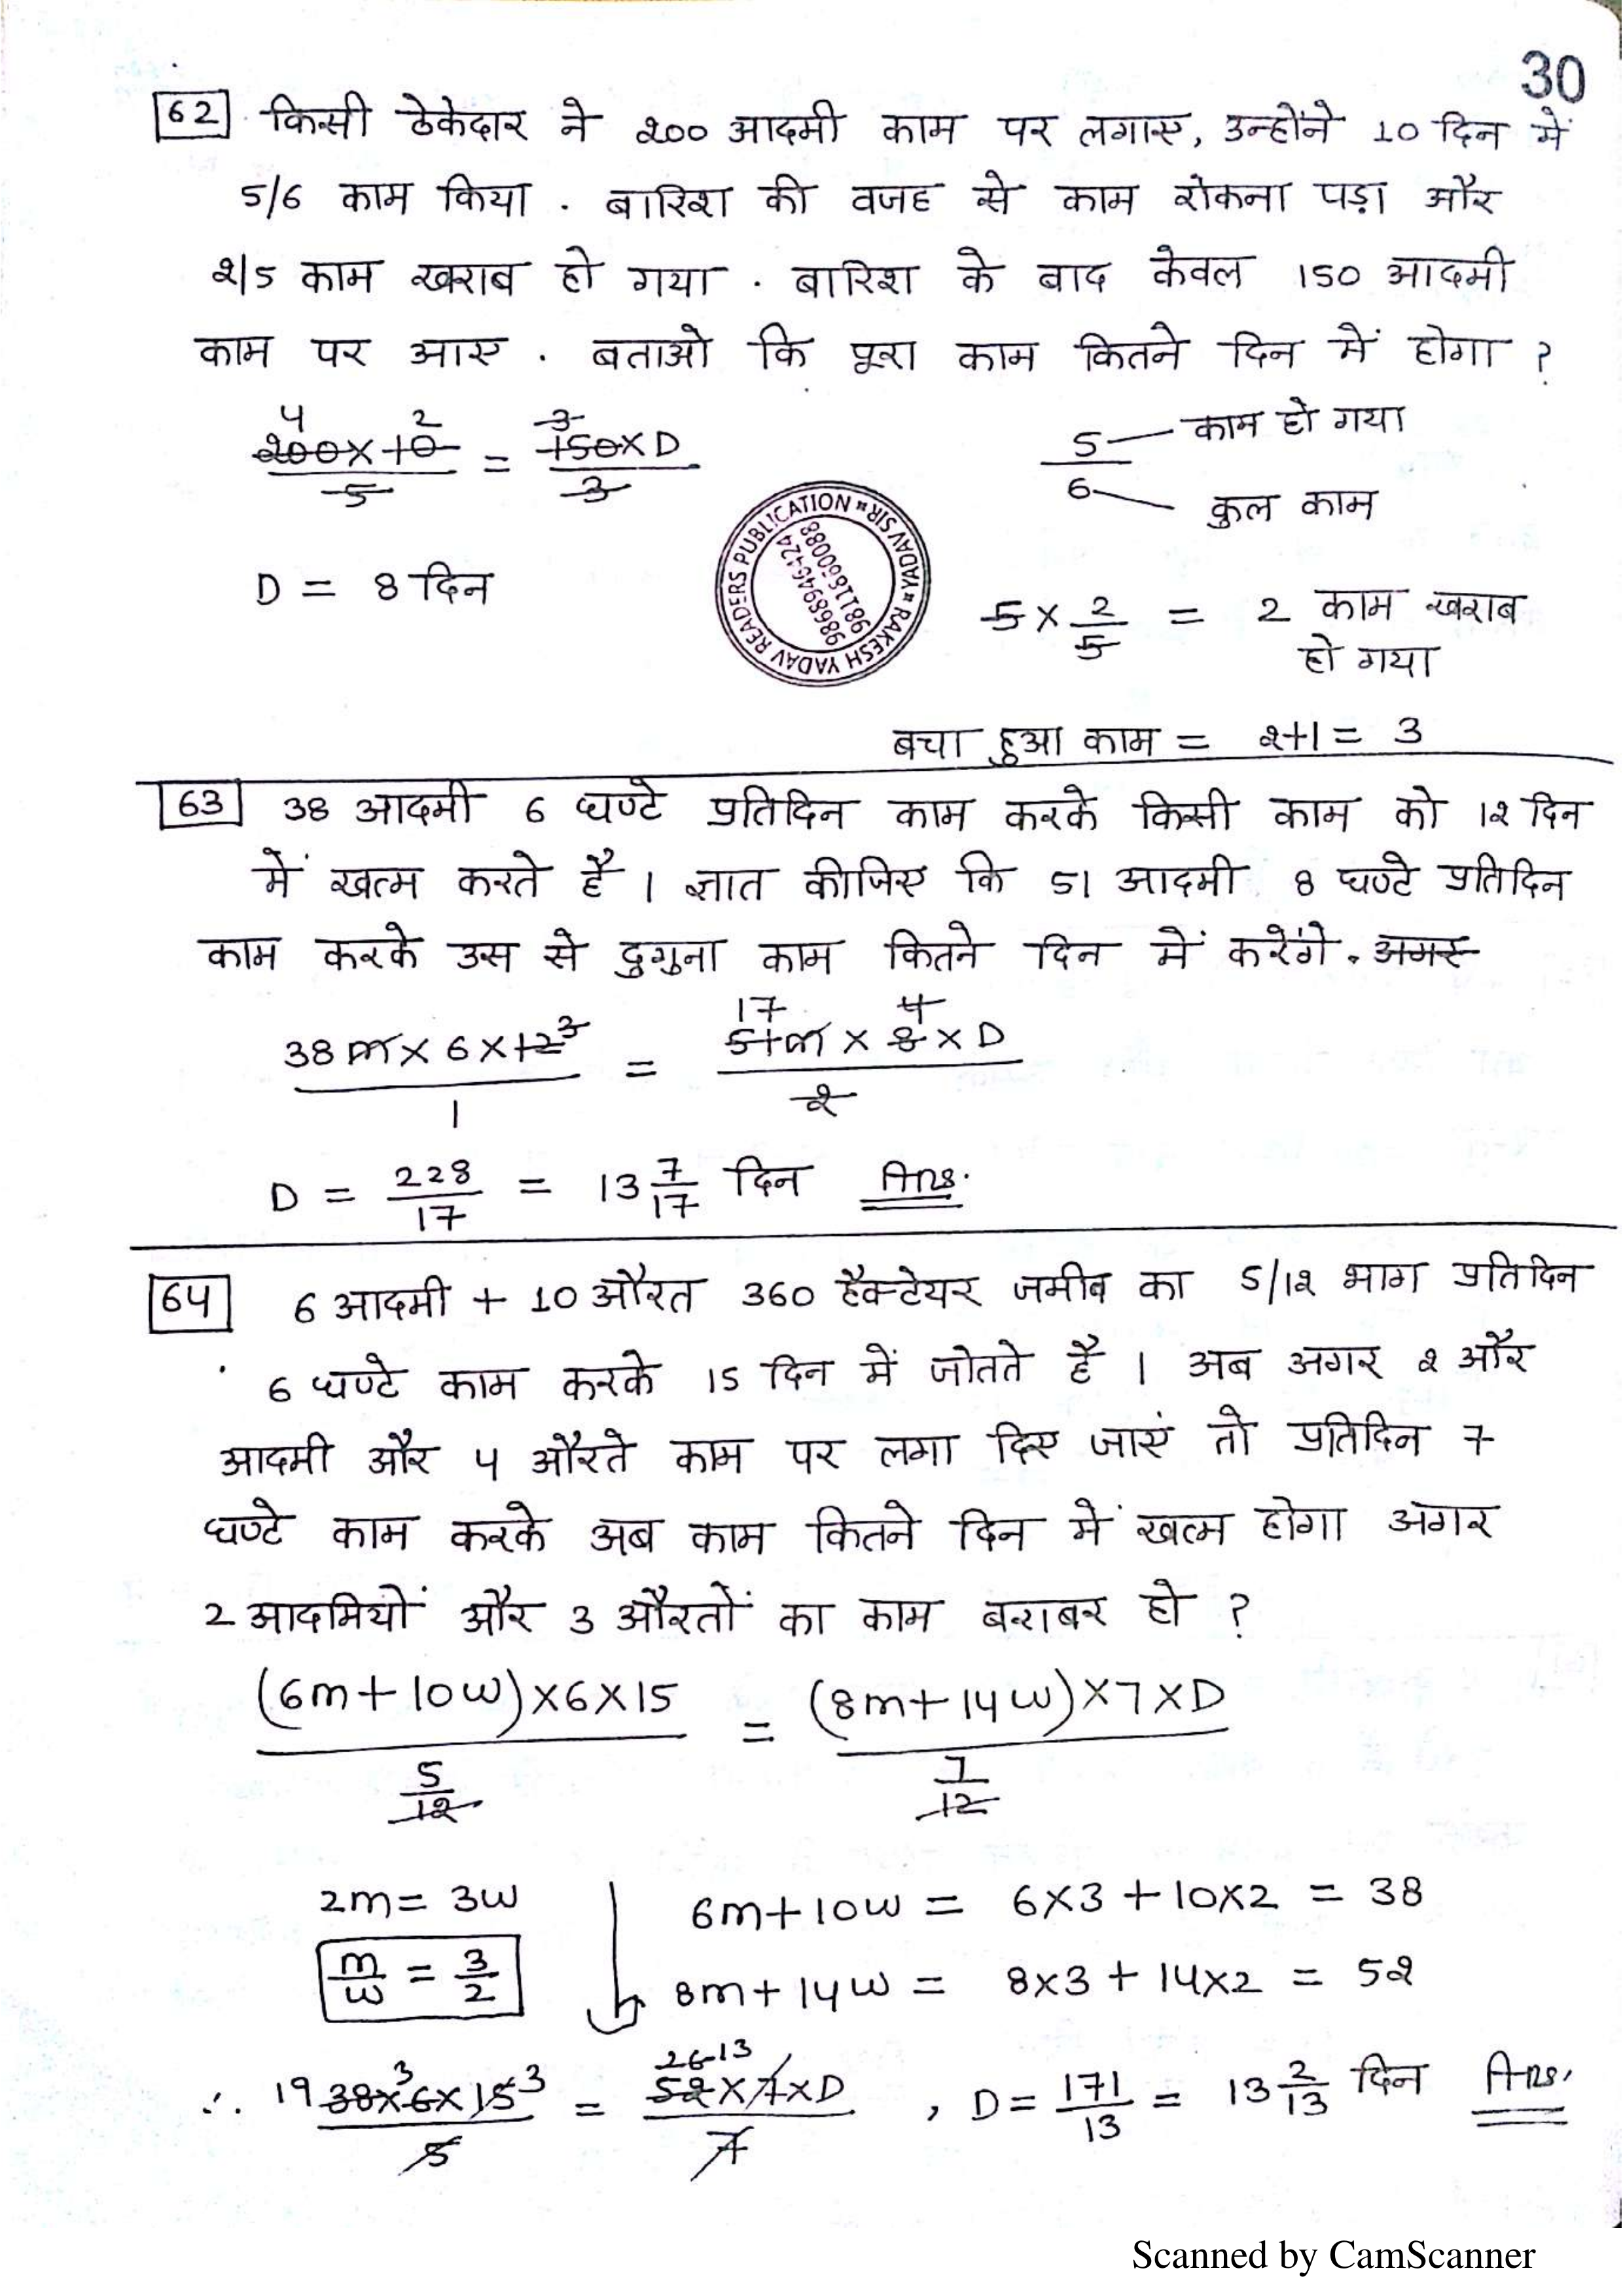 30
62 किसी ठेकेदार ने 200 आदमी काम पर लगाए, उन्होंने 10 दिन में
5/6 काम किया . बारिश की वजह से काम रोकना पड़ा और
2/5 काम खराब हो गया . बारिश के बाद केवल 150 आदमी
काम पर आए . बताओ कि पूरा काम कितने दिन में होगा ?
4 2 3
200×10 / 5 = 150×D / 3
5 — काम हो गया
6 — कुल काम
D = 8 दिन
5 × 2/5 = 2 काम खराब
हो गया
READERS PUBLICATION * RAKESH YADAV * YADAV SIR *
9868946424
9811860088
बचा हुआ काम = 2+1 = 3
63 38 आदमी 6 घण्टे प्रतिदिन काम करके किसी काम को 12 दिन
में खत्म करते है । ज्ञात कीजिए कि 51 आदमी 8 घण्टे प्रतिदिन
काम करके उस से दुगुना काम कितने दिन में करेंगे .
17 4
38 m × 6 × 12 3 / 1 = 51 m × 8 × D / 2
D = 228/17 = 13 7/17 दिन Ans.
64 6 आदमी + 10 औरत 360 हैक्टेयर जमीन का 5/12 भाग प्रतिदिन
6 घण्टे काम करके 15 दिन में जोतते है । अब अगर 2 और
आदमी और 4 औरते काम पर लगा दिए जाएं तो प्रतिदिन 7
घण्टे काम करके अब काम कितने दिन में खत्म होगा अगर
2 आदमियों और 3 औरतों का काम बराबर हो ?
(6m+10w)×6×15 / 5/12 = (8m+14w)×7×D / 7/12
2m = 3w
m/w = 3/2
6m+10w = 6×3 + 10×2 = 38
8m+14w = 8×3 + 14×2 = 52
3 26 13
∴ 19 38×6×15 3 / 5 = 52×7×D / 7 , D = 171/13 = 13 2/13 दिन Ans.
Scanned by CamScanner